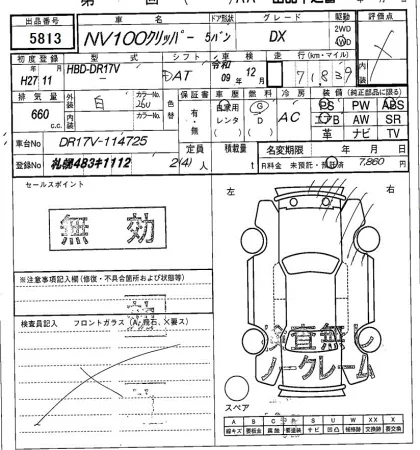 出品番号 車名 ドア形状 グレード 駆動 評価点
5813 NV100クリッパー 5バン DX 2WD 4WD
初度登録 型式 シフト 車検 走行(km・マイル)
H27 11 HBD-DR17V DAT 令和 09年 12月
排気量 外装 色 カラーNo. 色替 保証書 車歴 燃料 冷房 装備(純正部品に限る)
660 c.c. 白 26U 有・無 自家用 レンタ G D AC PS PW ABS
内装 カラーNo. エアB AW SR
革 ナビ TV
車台No DR17V-114725 定員 積載量 名変期限 年 月 日
登録No 札幌483キ1112 2(4)人 t R料金 未預託・預託済 7,860円
セールスポイント
無効
左 右
※注意事項記入欄(修復・不具合箇所および状態等)
検査員記入 フロントガラス(A,飛石、×要ス)
検査無し
ノークレーム
スペア
A B C P S U W X XX
線キズ 要板金 腐蝕 要塗装 サビ 凹凸 補修跡 交換跡 要交換